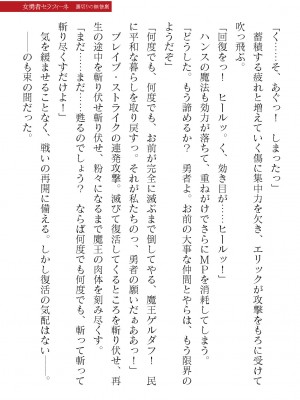 女勇者セラフィーネ
「く……そ、あぐっ！　しまったっ」
　蓄積する疲れと増えていく傷に集中力を欠き、エリックが攻撃をもろに受けて
吹っ飛ぶ。
「回復をっ！　ヒールッ。く、効き目が……ヒールッ！」
　ハンスの魔法も効力が落ちて、重ねがけでさらにＭＰを消耗してしまう。
「どうした。もう諦めるか？　勇者よ。お前の大事な仲間とやらは、もう限界の
ようだぞ」
「何度でも、何度でも、お前が完全に滅ぶまで倒してやる、魔王ゲルダフ！　民
に平和な暮らしを取り戻すっ。それが私たちのっ、勇者の願いだぁああっ！」
　ブレイブ・ストライクの連発攻撃。滅びて復活してくるところを斬り伏せ、再
生の途中を斬り伏せ斬り伏せ、粉々になるまで魔王の肉体を刻み尽くす。
「まだ……まだ……甦るのでしょう？　ならば何度でも何度でも、斬って斬って
斬り尽くすだけよ！」
　気を緩ませることなく、戦いの再開に備える。しかし復活の気配はない――。
　――のも束の間だった。